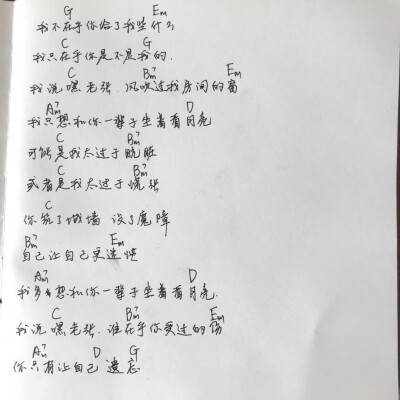 G Em
我不在乎你给了我些什么
C G
我只在乎你是不是我的.
C Bm7 Em
我说嘿老张 风吹过我房间的窗
Am7 D
我只想和你一辈子坐着看月亮
C Bm7
可能是我太过于肮脏
C Bm7
或者是我太过于慌张
C
你筑了城墙 设了魔障
Bm7 Em
自己让自己变迷惘
Am7 D
我多么想和你一辈子坐着看月亮.
C Bm7 Em
我说嘿老张. 谁在乎你受过的伤
Am7 D G
你只有让自己 遗忘